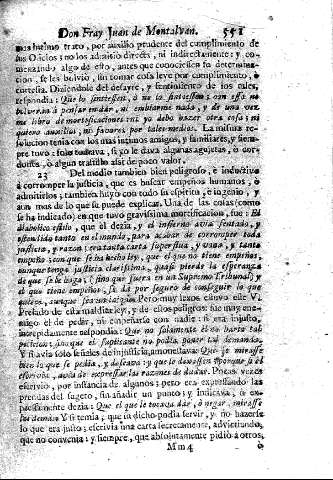 Don Fray Juan de Montalvan. 551
mas intimo trato, por auxilio prudente del cumplimiento de
sus Oficios; no los admitió directè, ni indirectamente: y co-
mençando algo de esto, antes que conociessen su determina-
cion, se les bolviò, sin tomar cosa leve por cumplimiento, ò
cortesia. Diziendole del desayre, y sentimiento de los tales,
respondia: Que lo sintiessen, ò no lo sintiessen; con esso no
bolveràn à pensar en dar, ni embiarme nada, y de una vez
me libro de mortificaciones: ni yo debo hazer otra cosa; ni
quiero auxilios, ni favores por tales medios. La misma re-
solucion tenia con los mas intimos amigos, y familiares, y siem-
pre tuvo: solo tomava, si yo le dava algunas agujetas, ò cor-
dones, ò algun trastillo assi de poco valor.
23 Del medio tambien bien peligroso, è inductivo
à corromper la justicia, que es buscar empeños humanos, ò
admitirlos; tambien huyò con todo su espiritu, è ingenio, y
aun mas de lo que se puede explicar. Una de las cosas (como
se ha indicado) en que tuvo gravissima mortificacion, fue: El
diabolico estilo, que èl dezia, y el infierno avia sentado, y
estendido tanto en el mundo, para acabar de corromper toda
justicia, y razon: tanta carta superflua, y vana, y tanto
empeño; con que se ha hecho ley, que el que no tiene empeños,
aunque tenga justicia clarissima, quasi pierda la esperança
de que se le haga, (sino que fuera en un Supremo Tribunal) y
el que tiene empeños, se dà por seguro de conseguir lo que
quiere, aunque sea un Pero muy lexos estuvo este V.
Prelado de esta maldita ley, y de estos peligros: fue muy ene-
migo el de pedir, ni empeñarse con nadie: si era injusto,
intrepidamente respondia: Que no solamente èl no haria tal
peticion; sino que el suplicante no podia poner tal demanda.
Y si avia solo señales de injusticia, amonestava: Que se mirasse
bien lo que se pedia, y deseava: y que le dexassen
avia de expressar las razones de dudar. Pocas vezes
escriviò, por instancia de algunos; pero era expressando las
prendas del sugeto, sin añadir un punto; y indicava, ò ex-
pressamente dezia: Que el que le tocava dàr, ò negar, mirasse
los demàs. Y si temia, que su dicho podia servir, y no hazerse
lo que era justo; escrivia una carta secretamente, advirtiendo,
que no convenia: y siempre, que absolutamente pidiò à otros,
Mm 4 ò